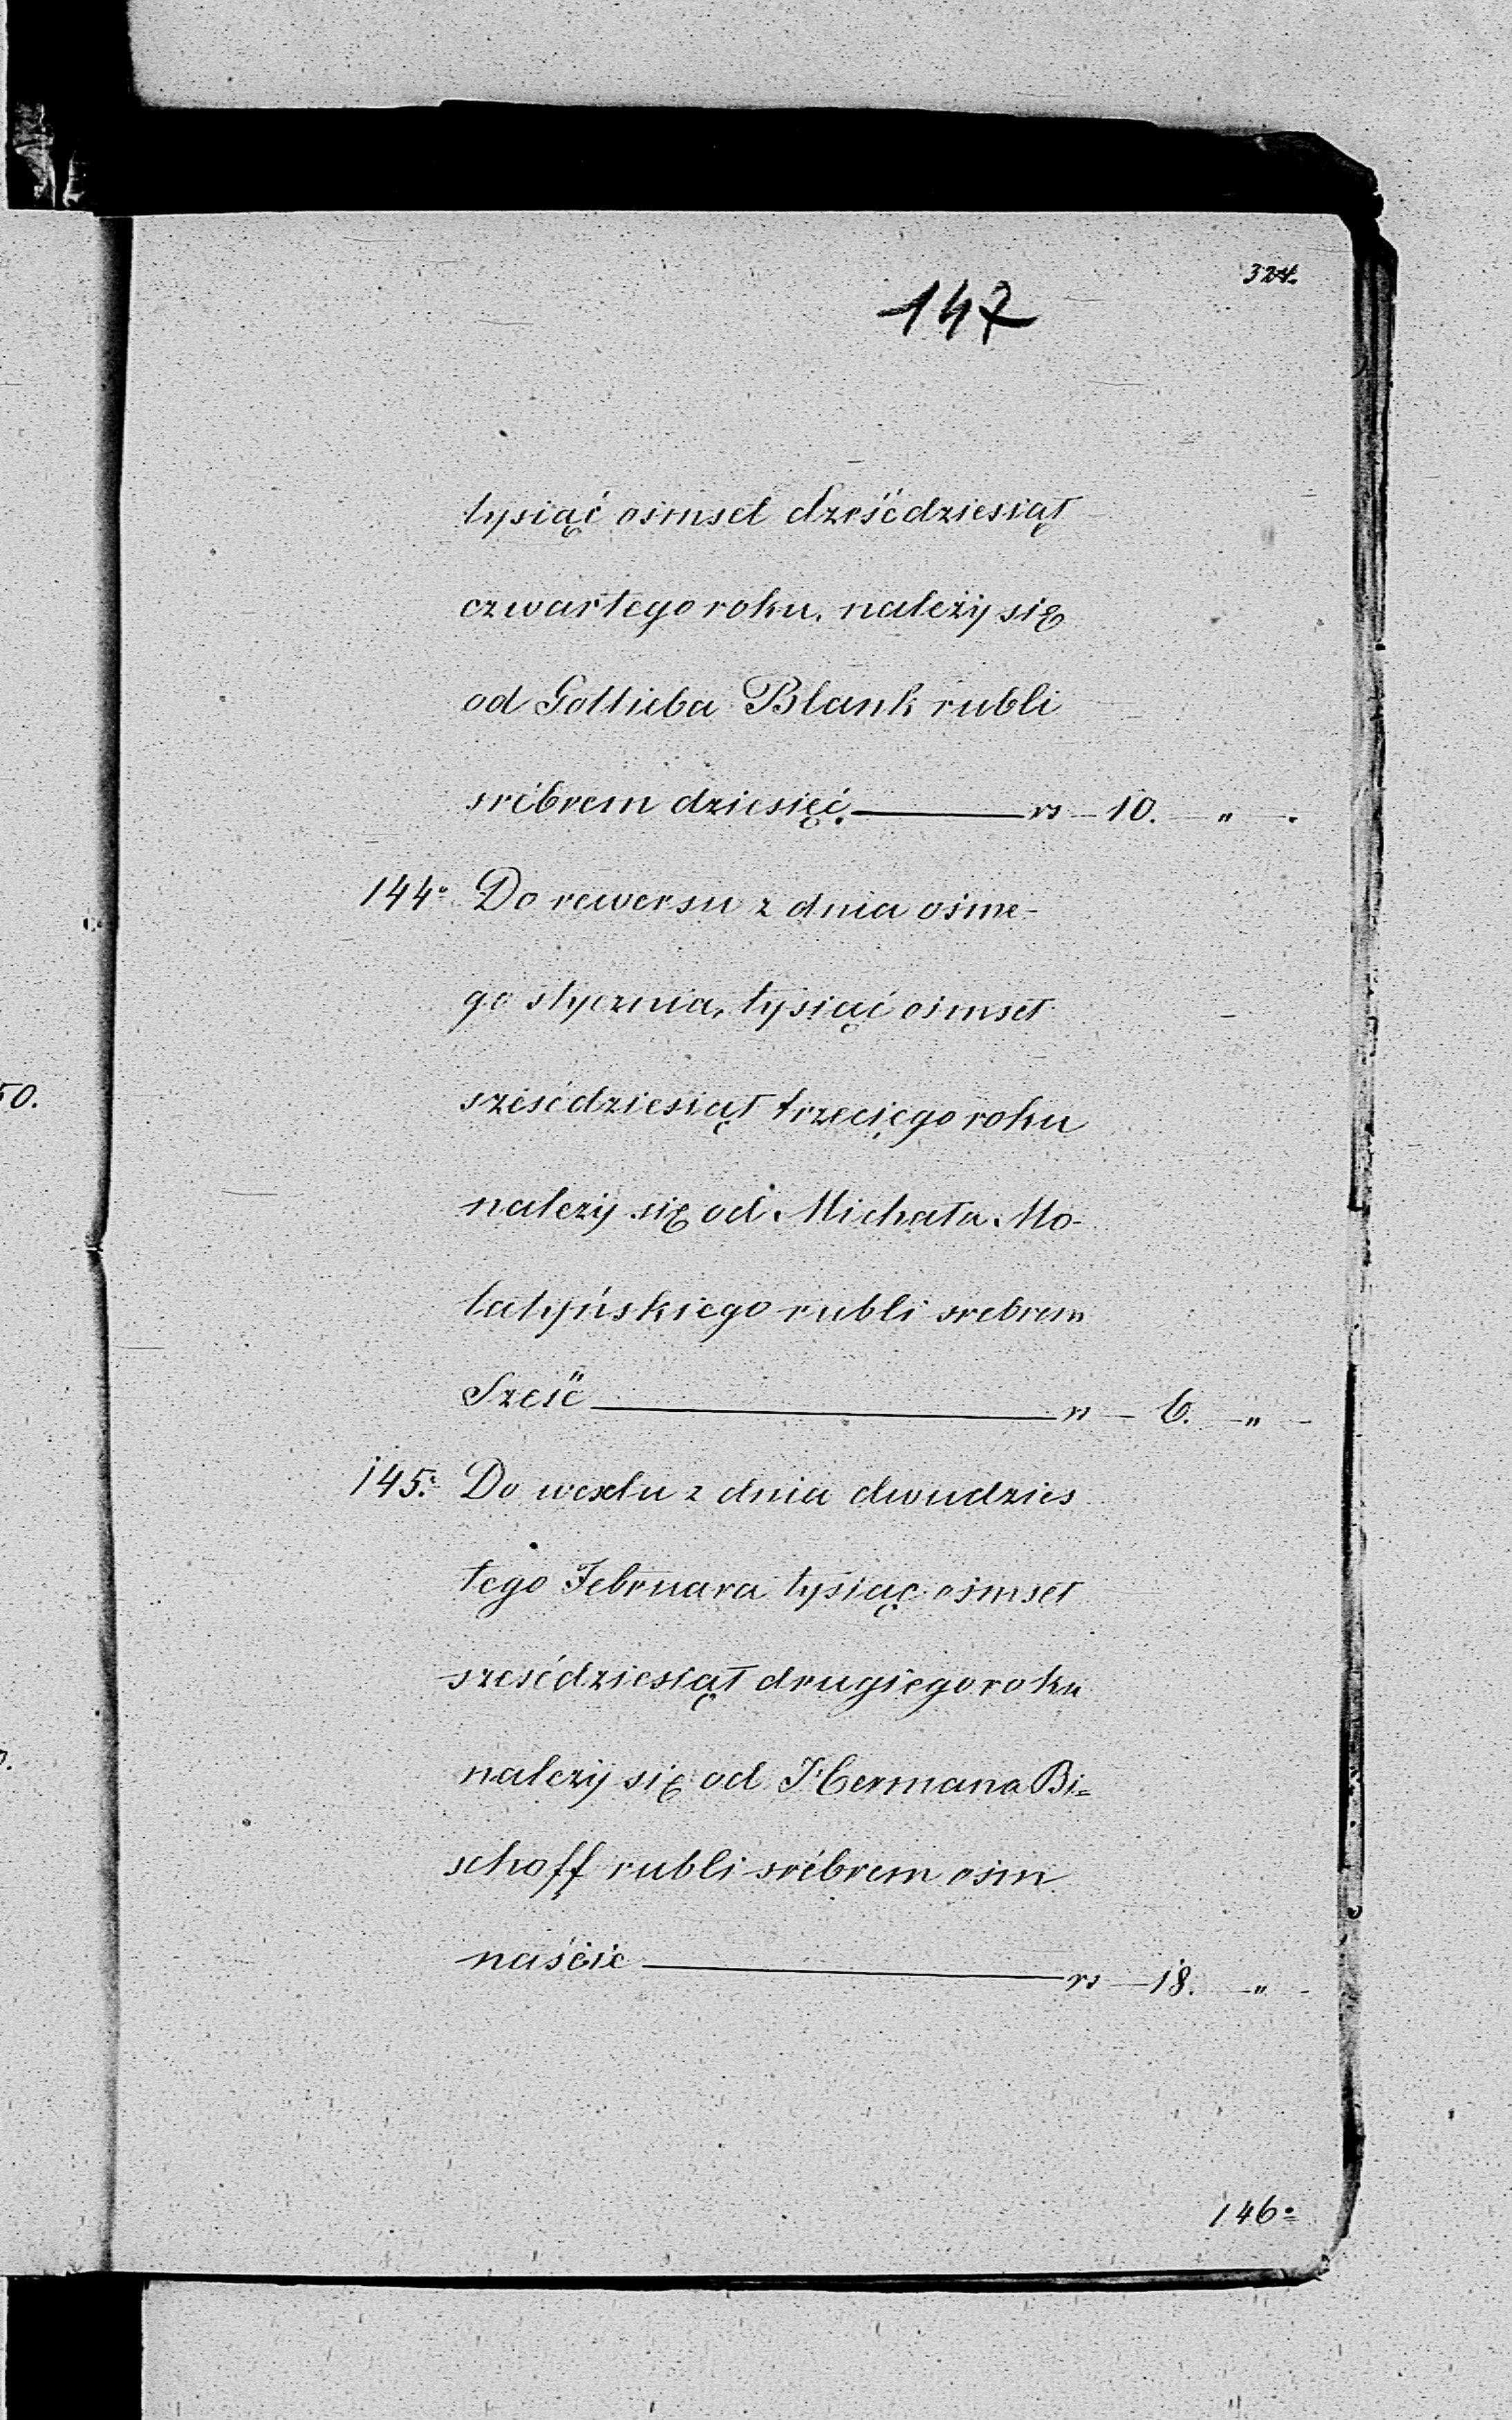 324.
147
tysiąć ośmset sześćdziesiąt
czwartego roku, należy się
od Gottlieba Blank rubli
srébrem dziesięć. rs 10. "
144° Do rewersu z dnia ośme-
go stycznia, tysiąć ośmset
sześćdziesiąt trzeciego roku
należy się od Michała Mo-
tatyńskiego rubli srebrem
Sześć rs 6. "
145° Do wexlu z dnia dwudzies
tego Februara tysiąc ośmset
sześćdziesiąt drugiego roku
należy się od Hermana Bi=
schoff rubli srébrem ośm
naście rs 18. "
50.
146°